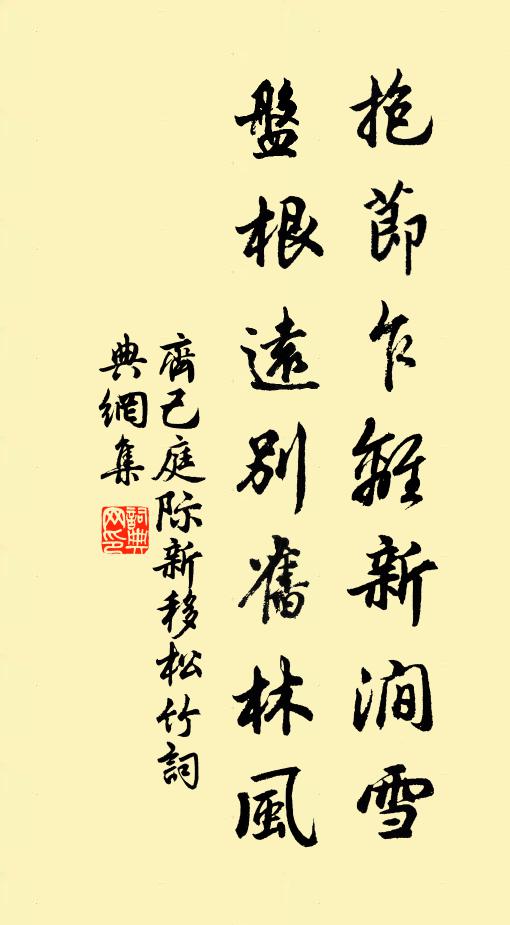 抱節乍離新澗雪
盤根遠別舊林風
齊己庭际新移松竹詞
典網集
詞典
网印